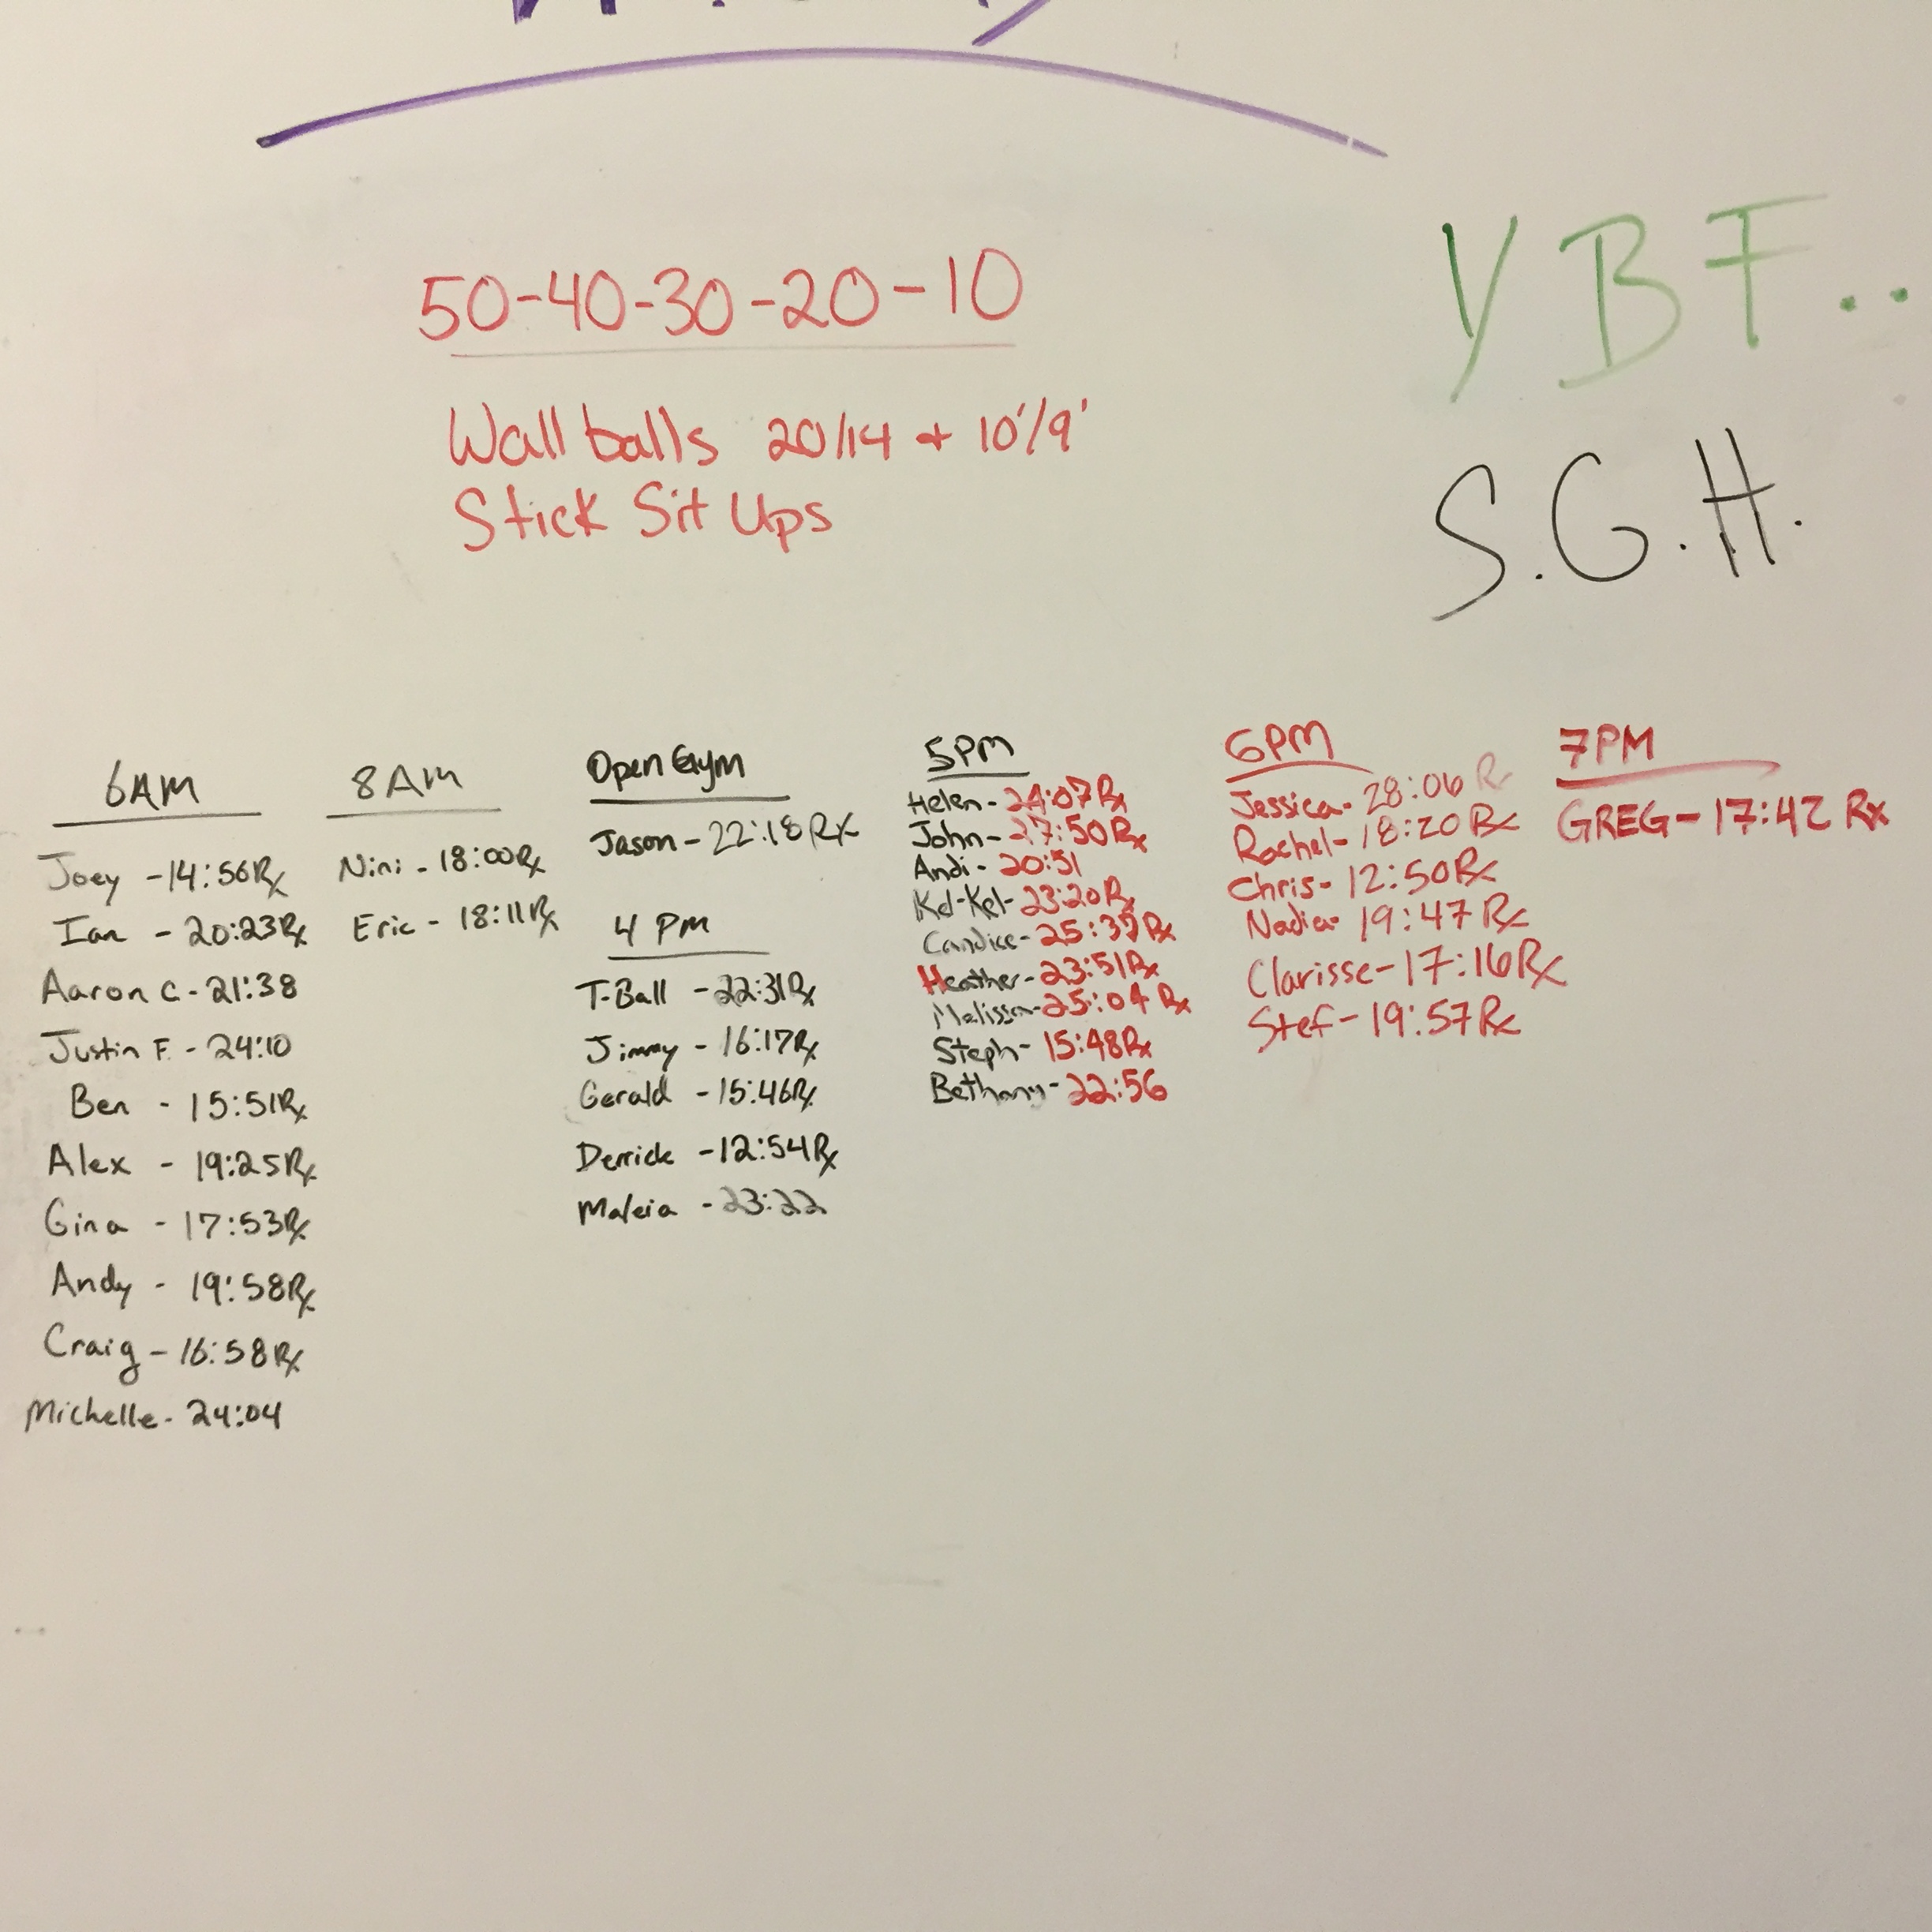 50-40-30-20-10
Wall balls 20/14 + 10'/9'
Stick Sit Ups
Y B F..
S.G.H.
6AM
Joey - 14:56 Rx
Ian - 20:23 Rx
Aaron C. - 21:38
Justin F. - 24:10
Ben - 15:51 Rx
Alex - 19:25 Rx
Gina - 17:53 Rx
Andy - 19:58 Rx
Craig - 16:58 Rx
Michelle - 24:04
8AM
Nini - 18:00 Rx
Eric - 18:11 Rx
Open Gym
Jason - 22:18 Rx
4 PM
T-Ball - 22:31 Rx
Jimmy - 16:17 Rx
Gerald - 15:46 Rx
Derrick - 12:54 Rx
Maleia - 23:22
5PM
Helen - 24:07 Rx
John - 27:50 Rx
Andi - 20:51
Kel-Kel - 23:20 Rx
Candice - 25:39 Rx
Heather - 23:51 Rx
Melissa - 25:04 Rx
Steph - 15:48 Rx
Bethany - 22:56
6PM
Jessica - 28:06 R
Rachel - 18:20 Rx
Chris - 12:50 Rx
Nadia - 19:47 Rx
Clarisse - 17:16 Rx
Stef - 19:57 Rx
7PM
GREG - 17:42 Rx